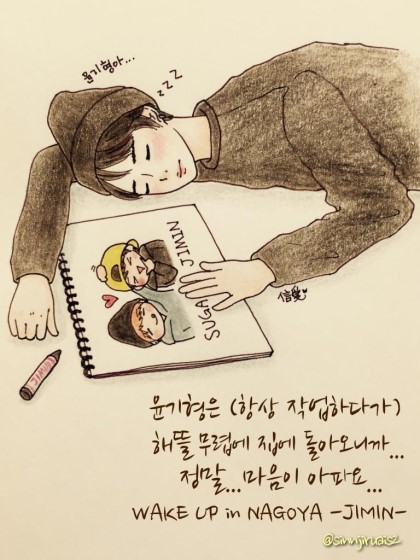 윤기형아...
zzz
JIMIN
SUGA
信愛
윤기형은 (항상 작업하다가)
해뜰 무렵에 집에 돌아오니까...
정말...마음이 아파요...
WAKE UP in NAGOYA -JIMIN-
@sinnjiruais2